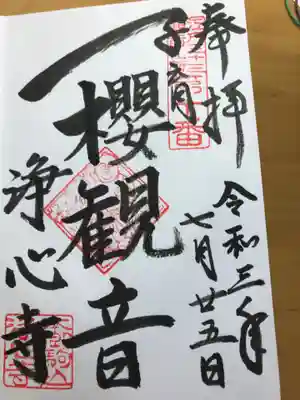 奉拝
令和三年
七月廿五日
子育
櫻観音
浄心寺